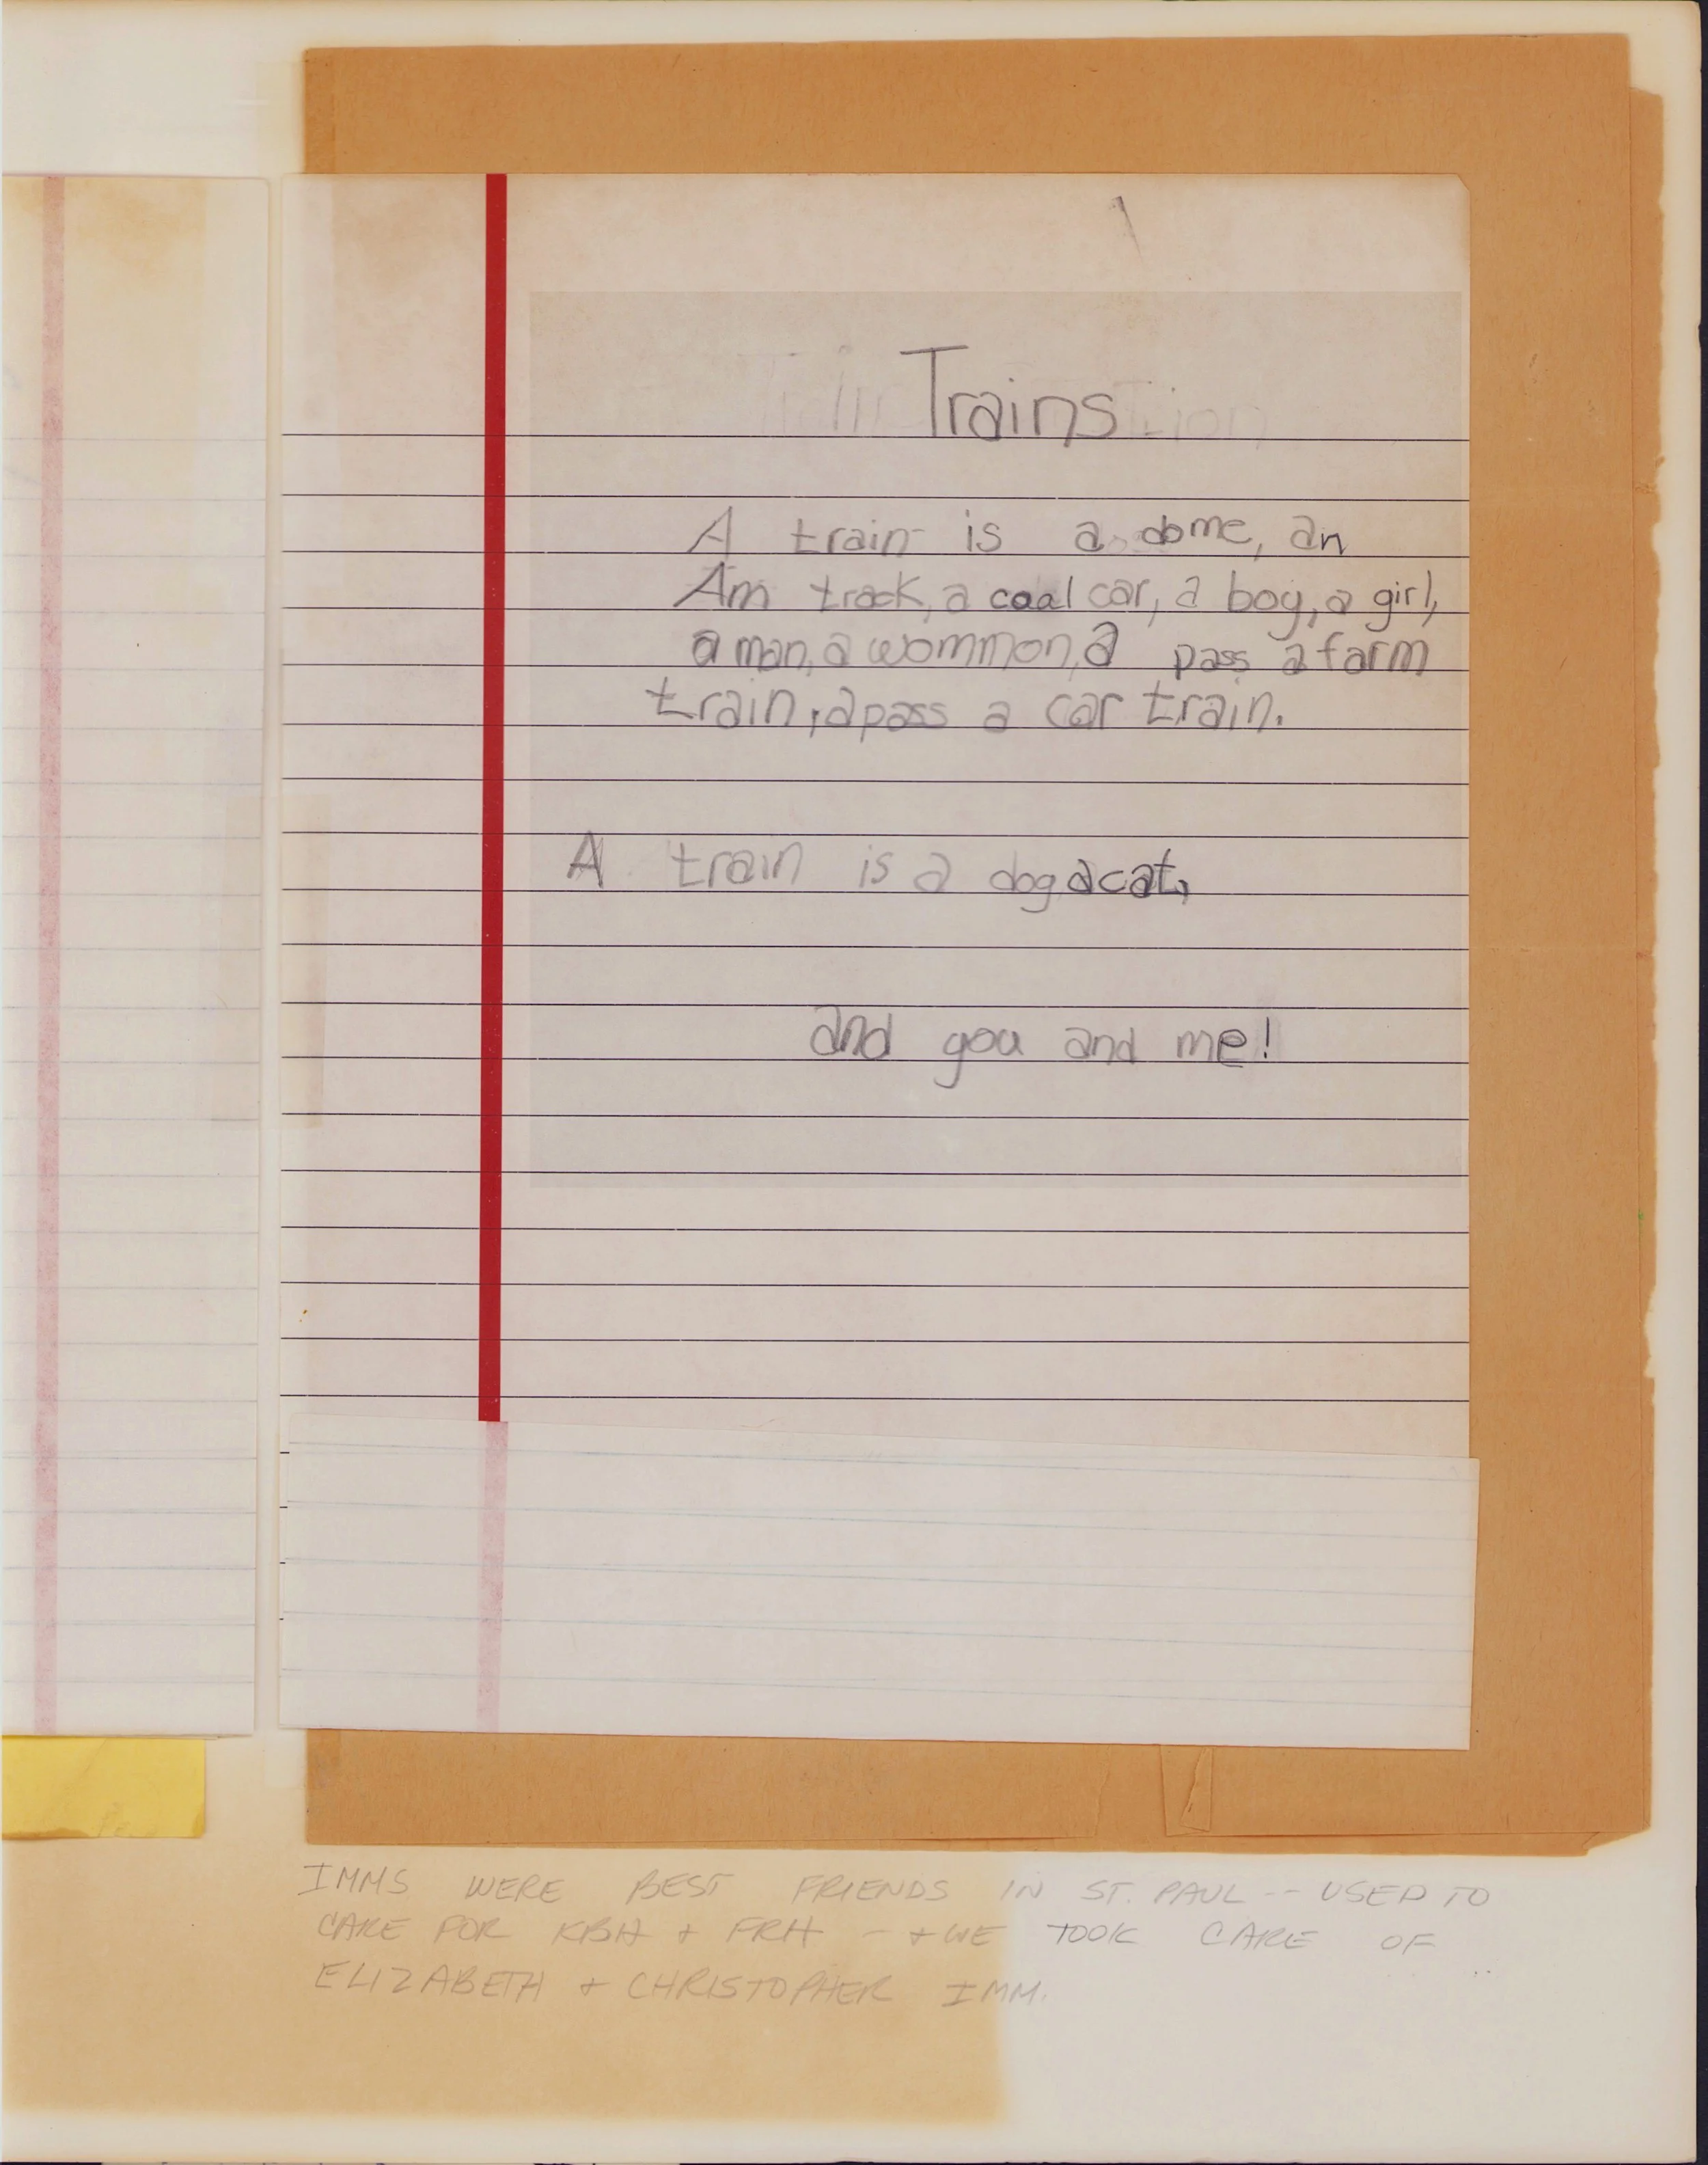 Trains
A train is a dome, an
Am track, a coal car, a boy, a girl,
a man, a wommon, a pass a farm
train, a pass a car train.
A train is a dog a cat,
and you and me!
IMMS WERE BEST FRIENDS IN ST. PAUL -- USED TO
CARE FOR KBH + FRH - + WE TOOK CARE OF
ELIZABETH + CHRISTOPHER IMM.